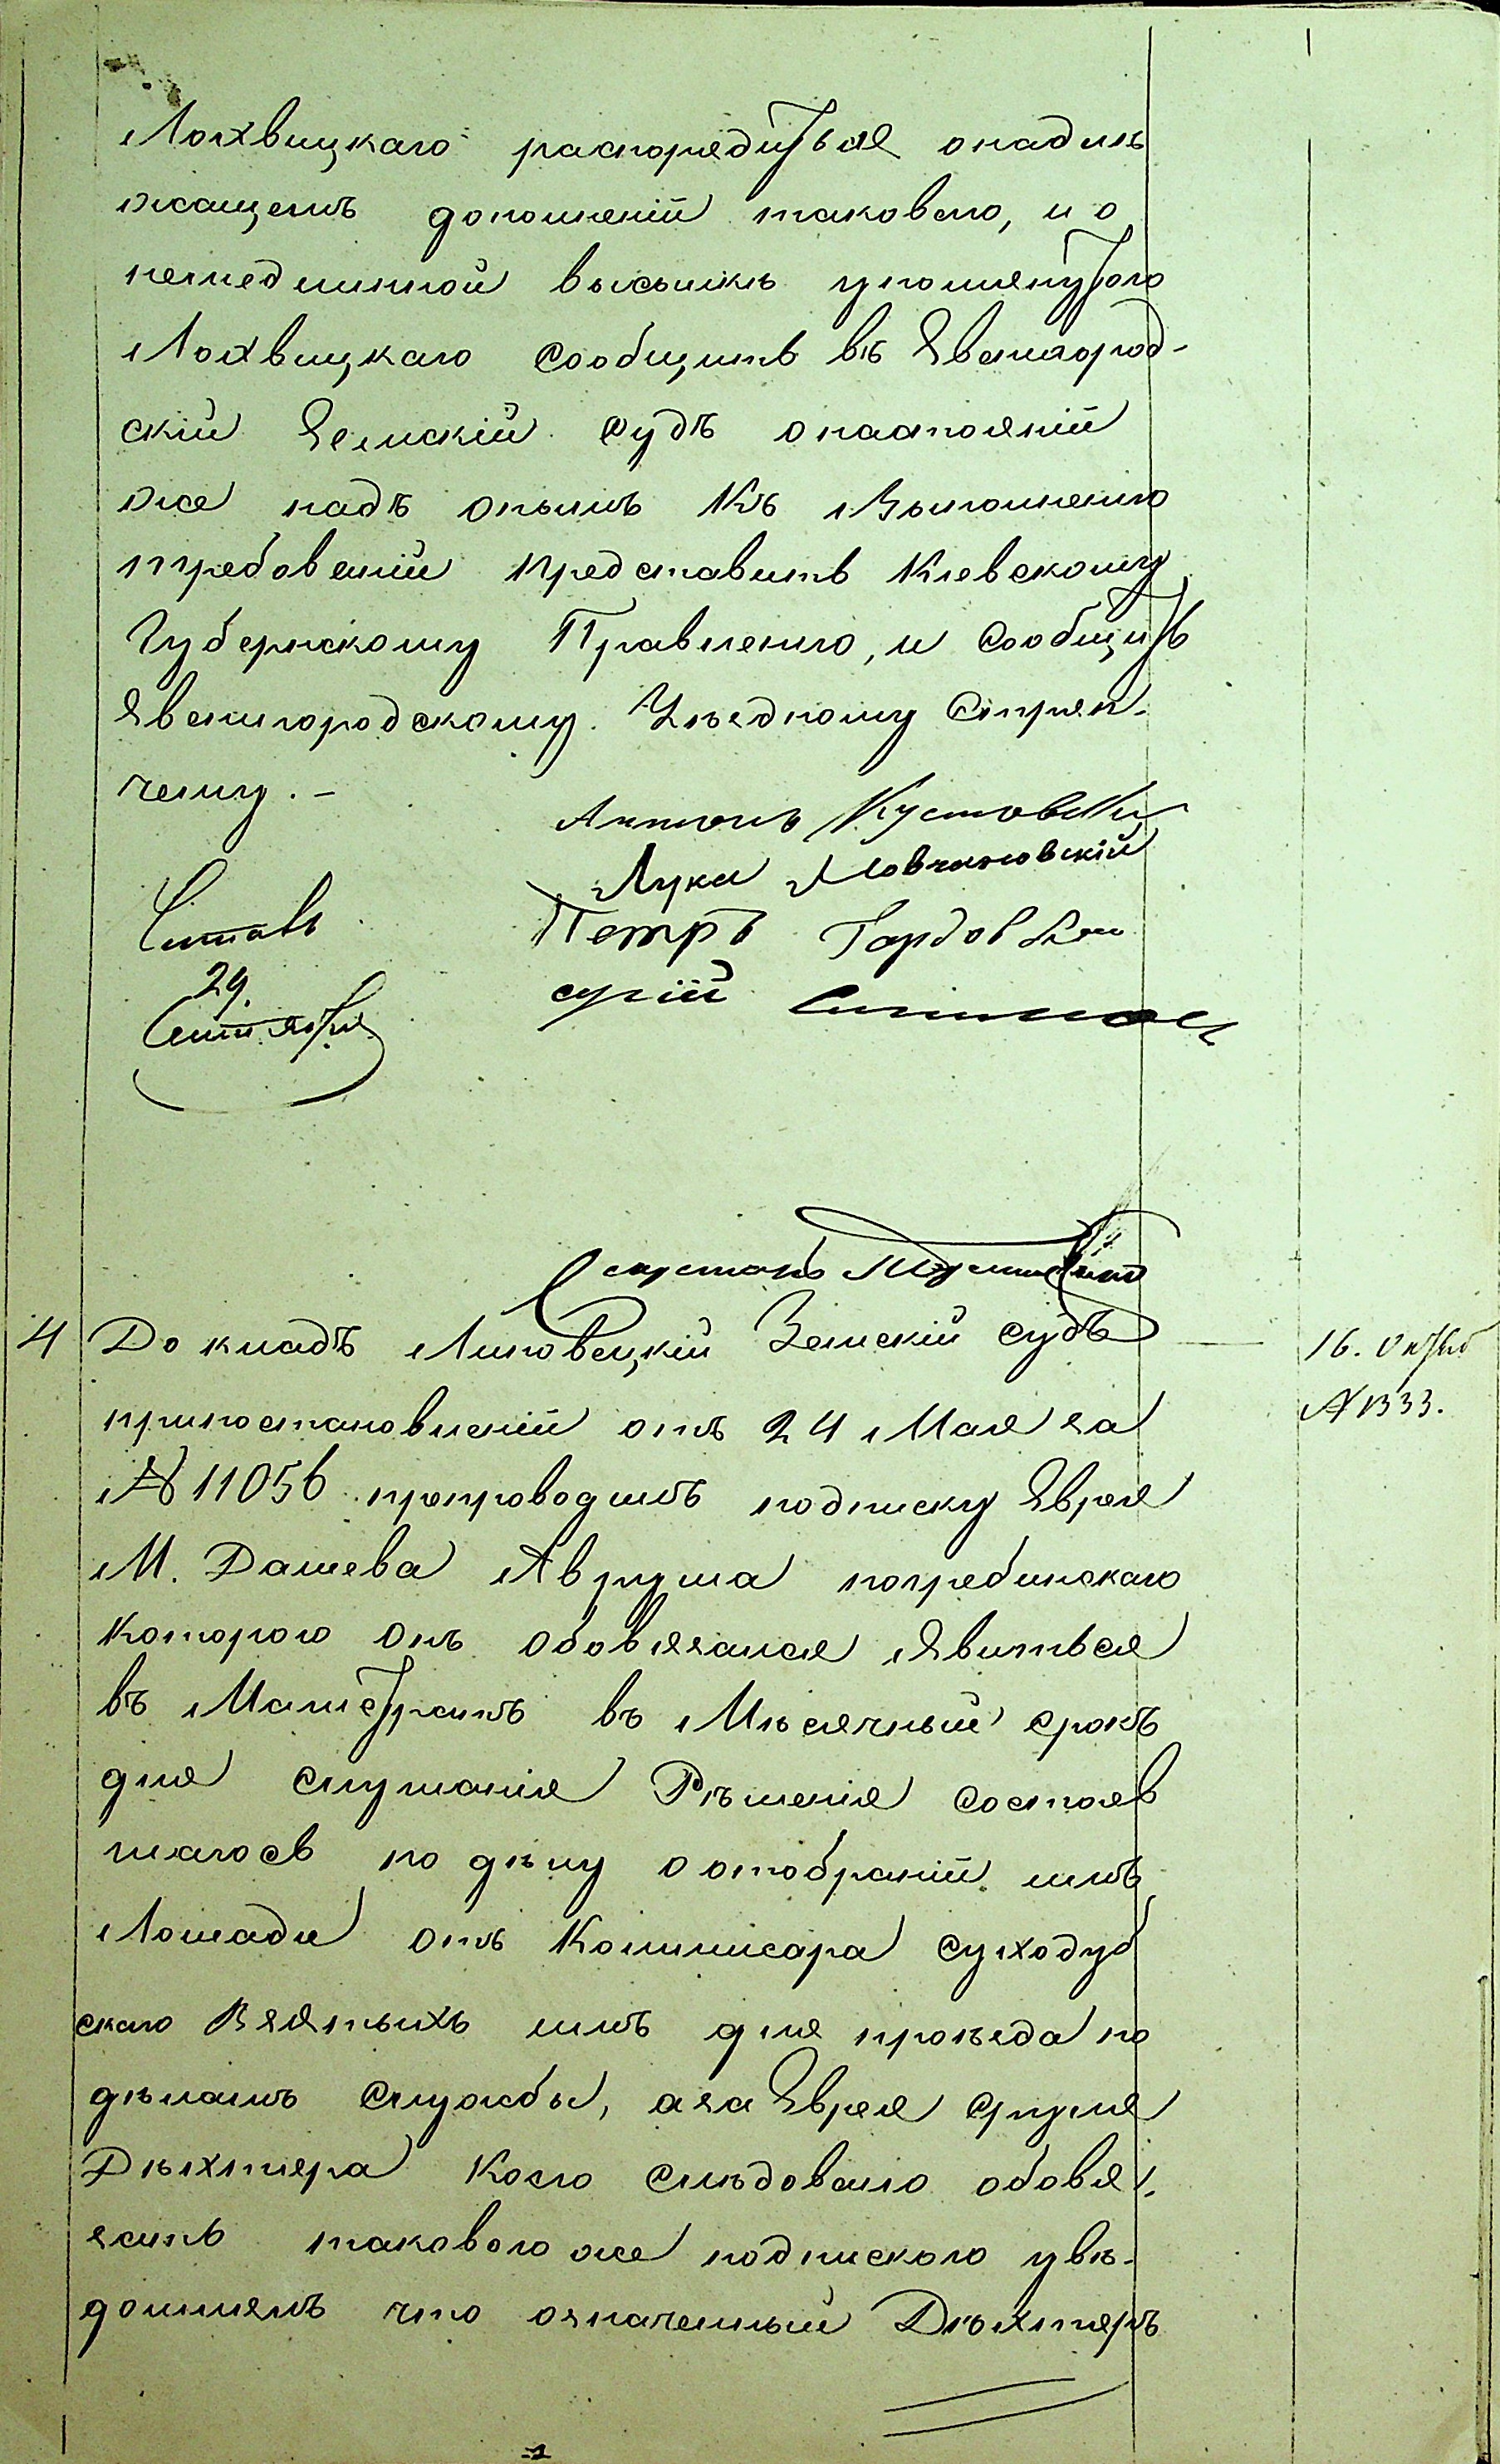 Лохвицкаго распорядиться о надле
жащемъ дополненіи таковаго, и о
немедленной высылкѣ упомянутого
Лохвицкаго сообщить въ Звенигород-
скій Земскій судъ о настояніи
же надъ онымъ къ Выполненію
требованій представить Кіевскому
Губернскому Правленію, и сообщить
Звенигородскому Уѣздному Стряп-
чему. –
Антонъ Кустовскій
Лука Мовчановскій
Петръ Гардов
Читалъ
29.
Сентября
4 Докладъ Липовецкій Земскій судъ
припостановленіи отъ 24 Мая за
№ 11056 препроводилъ подписку Еврея
М. Дашева Аврума погребинскаго
Которого онъ обовязался Явиться
въ Магистратъ въ Мѣсячный срокъ
для слушанія Рѣшенія состояв
шагось по дѣлу о отобраніи имъ
Лошади отъ Коммисара суходуб
скаго Взятыхъ имъ для проѣзда по
дѣламъ службы, а за Еврея сруля
Дѣхтяра коего слѣдовало обовя
зать таковою же подпискою увѣ-
домилъ что означенный Дѣхтяръ
16. Октяб
№ 1333.